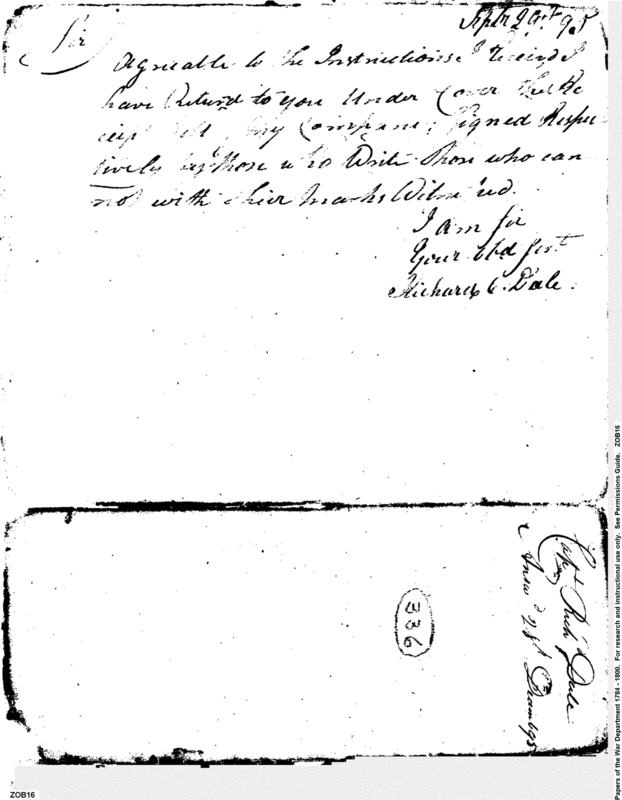 Septr 29th 95
Sir
Agreeable to the Instructions I Receivd I
have Returd to you Under Cover the Re
ceipt my Company Signed Respec
tively by those who Write Those who can
not with thier marks Witnessed.
I am Sir
Your obd Sert
Richard C. Dale.
Capt Richd Dale
Answd 28th
336
ZOB16
Papers of the War Department 1784 - 1800. For research and instructional use only. See Permissions Guide. ZOB16